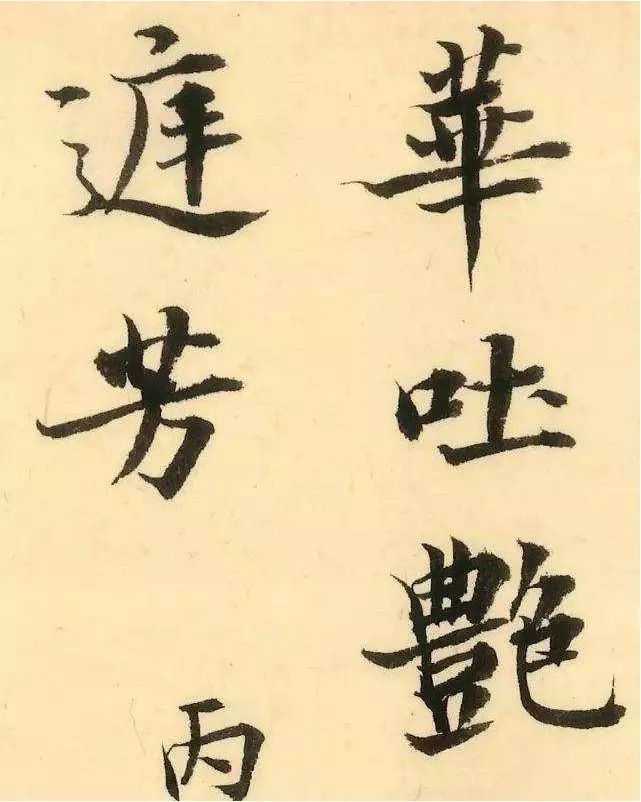 華吐艷
逓芳
丙